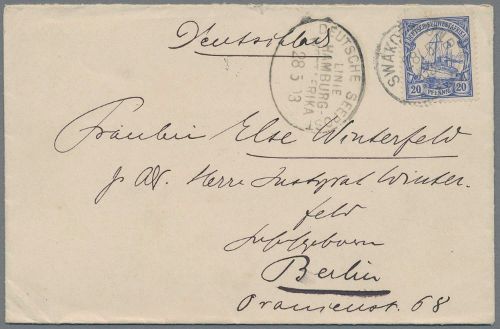 Deutschland
DEUTSCHE SEEPOST
LINIE
HAMBURG-
AFRIKA
28 5 13
SWAKOP
DEUTSCH-SÜDWESTAFRIKA
20 PFENNIG 20
Fräulein Else Winterfeld
p. Adr. Herrn Justizrat Winter-
feld
Berlin
Oranienst. 68